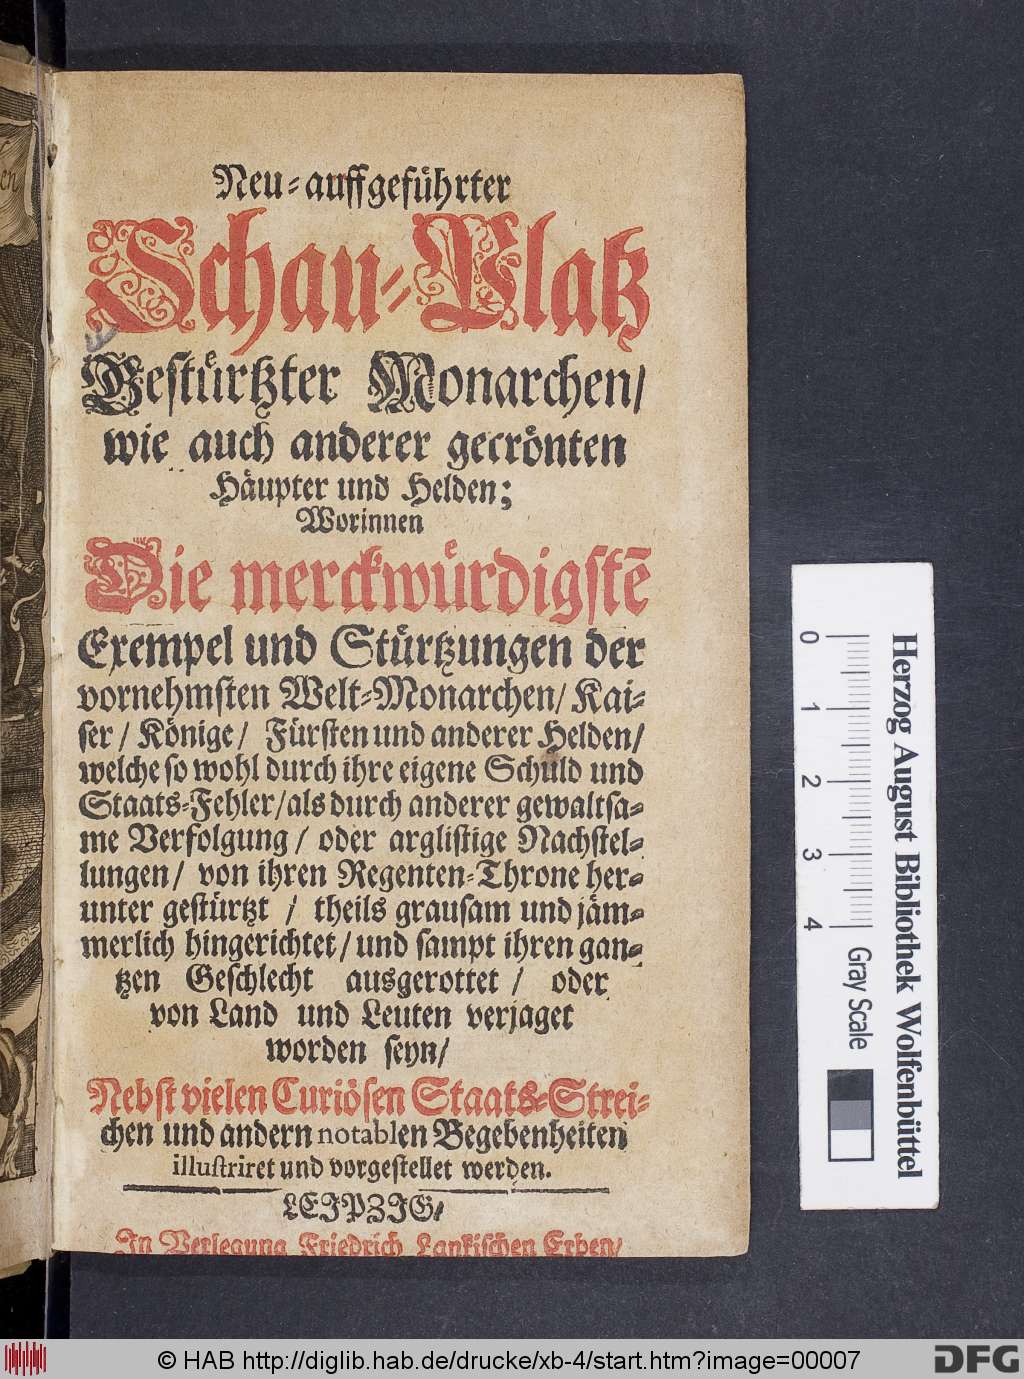 Neu-auffgeführter
Schau-Platz
Gestürtzter Monarchen/
wie auch anderer gecrönten
Häupter und Helden;
Worinnen
Die merckwürdigstē
Exempel und Stürtzungen der
vornehmsten Welt-Monarchen/ Kai-
ser/ Könige/ Fürsten und anderer Helden/
welche so wohl durch ihre eigene Schuld und
Staats-Fehler/ als durch anderer gewaltsa-
me Verfolgung/ oder arglistige Nachstel-
lungen/ von ihren Regenten-Throne her-
unter gestürtzt / theils grausam und jäm-
merlich hingerichtet/ und sampt ihren gan-
tzen Geschlecht ausgerottet / oder
von Land und Leuten verjaget
worden seyn/
Nebst vielen Curiösen Staats-Strei-
chen und andern notablen Begebenheiten
illustriret und vorgestellet werden.
LEIPZIG/
In Verlegung Friedrich Lankischen Erben/
0 1 2 3 4 Gray Scale
Herzog August Bibliothek Wolfenbüttel
© HAB http://diglib.hab.de/drucke/xb-4/start.htm?image=00007
DFG